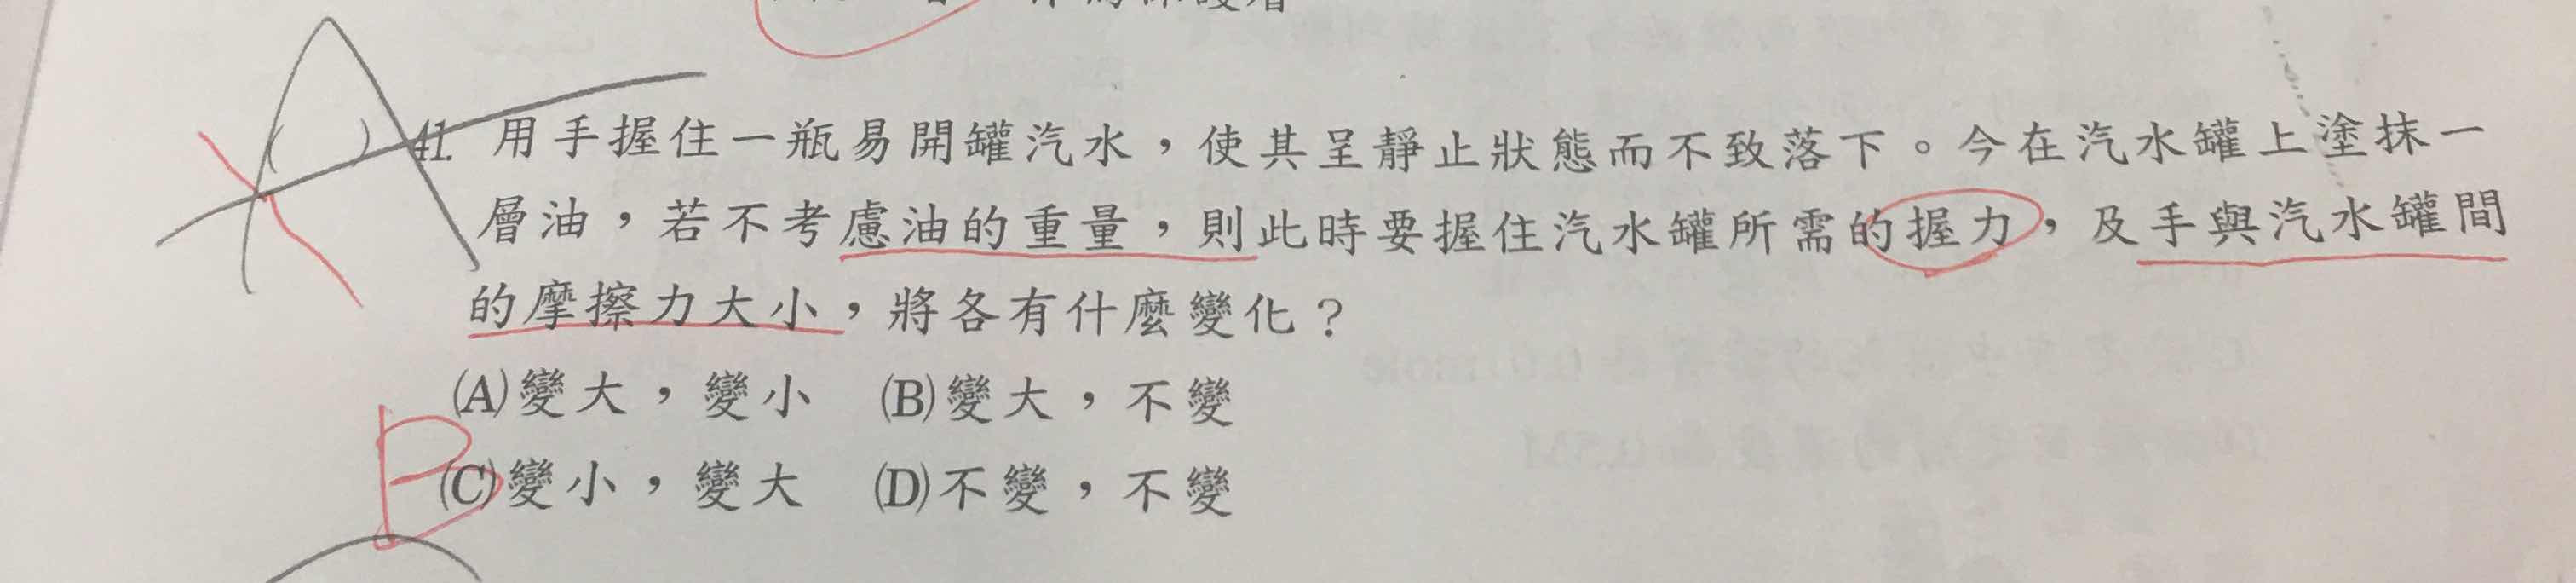 A
( )41. 用手握住一瓶易開罐汽水，使其呈靜止狀態而不致落下。今在汽水罐上塗抹一
層油，若不考慮油的重量，則此時要握住汽水罐所需的握力，及手與汽水罐間
的摩擦力大小，將各有什麼變化？
(A)變大，變小 (B)變大，不變
B
(C)變小，變大 (D)不變，不變